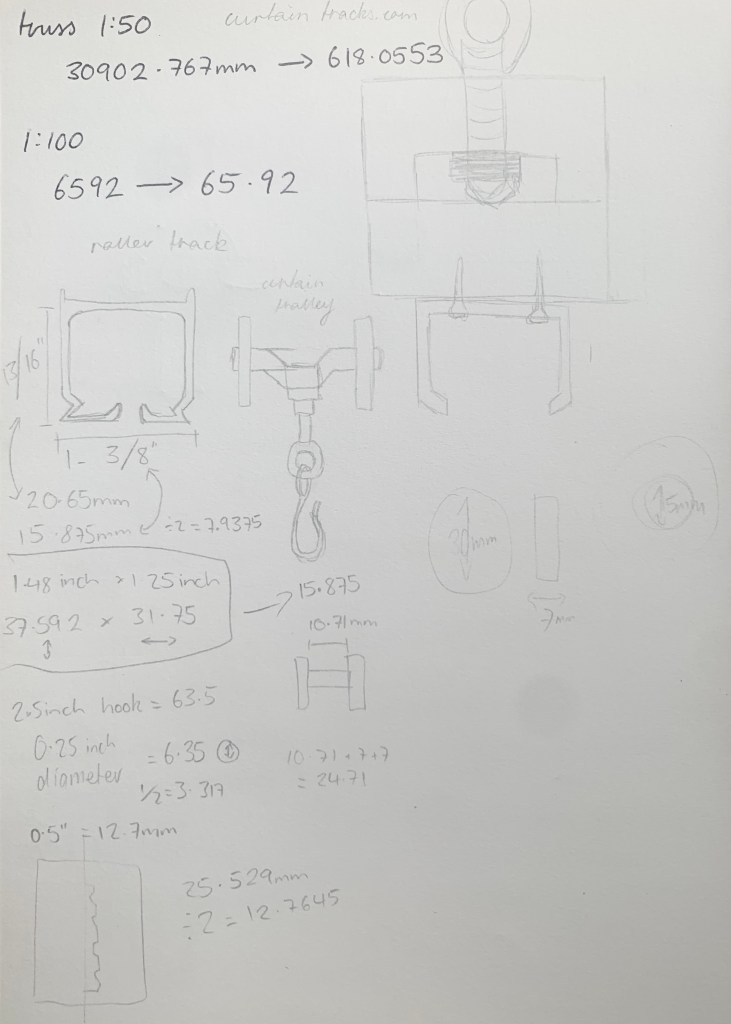 truss 1:50
curtain tracks.com
30902.767mm → 618.0553
1:100
6592 → 65.92
roller track
curtain
trolley
13/16"
1- 3/8"
20.65mm
15.875mm ÷2 = 7.9375
20mm
15mm
7mm
1.48 inch × 1.25inch
37.592 × 31.75
→ 15.875
10.71mm
2.5inch hook = 63.5
0.25 inch
diameter
= 6.35
1/2 = 3.317
10.71+7+7
= 24.71
0.5" = 12.7mm
25.529mm
÷2 = 12.7645